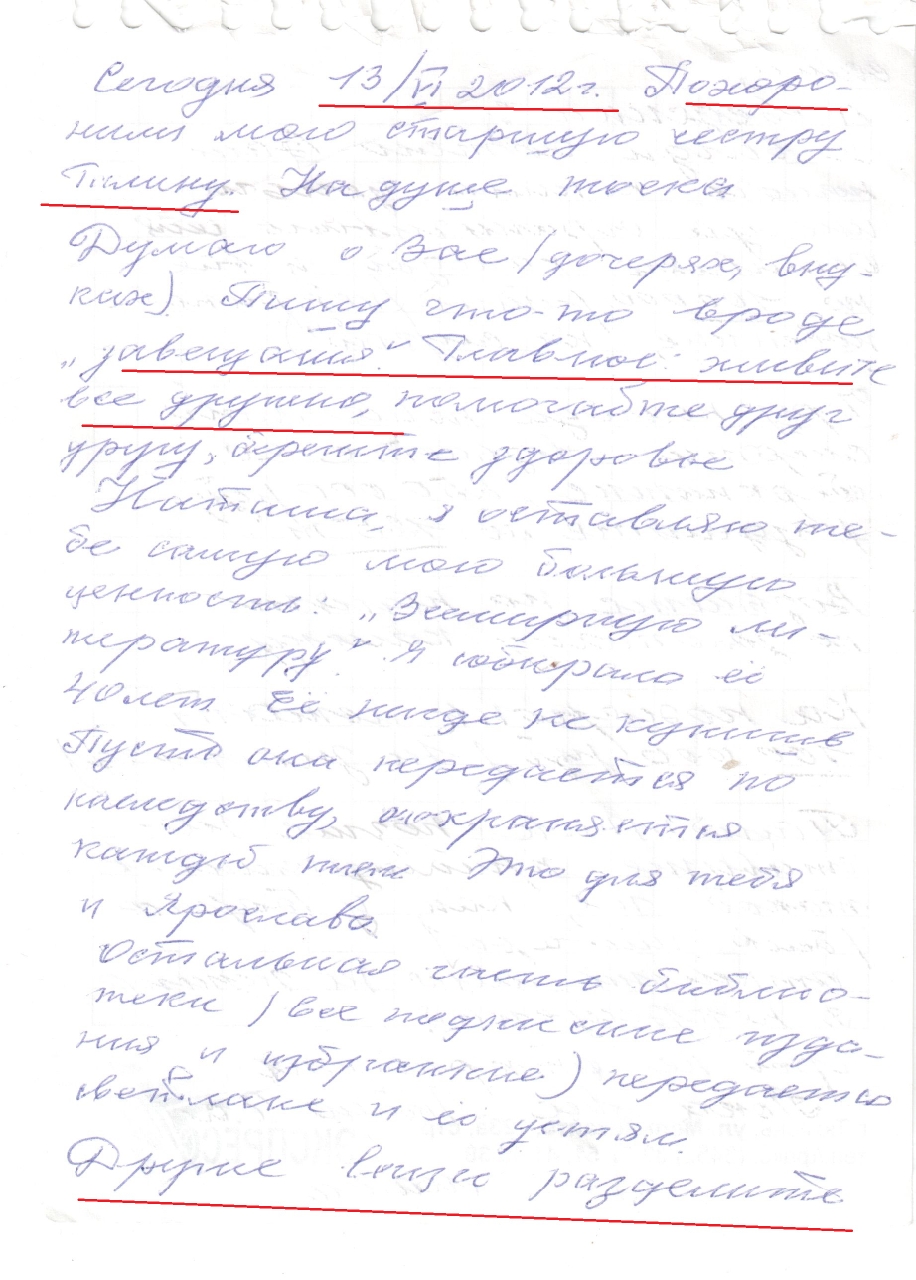 Сегодня 13/VI 2012г. Похоро-
нили мою старшую сестру
Галину. На душе тоска
Думаю о Вас /дочерях, вну-
ках) Пишу что-то вроде
„завещания“ Главное: живите
все дружно, помогайте друг
другу, берегите здоровье
Наташа, я оставляю те-
бе самую мою большую
ценность: „Всемирную ли-
тературу“ Я собирала её
40 лет Её нигде не купишь
Пусть она передается по
наследству, сохраняется
каждый том Это для тебя
и Ярослава
Остальная часть библио-
теки /все подписные изда-
ния и избранные) передается
Светлане и её детям.
Другие вещи разделите